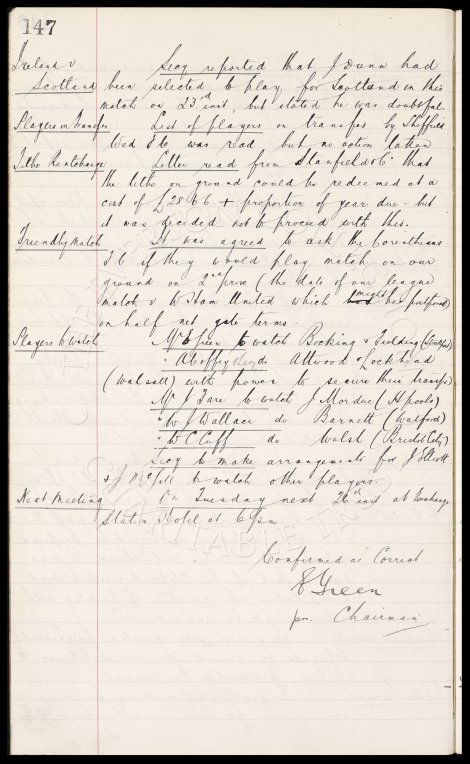 147
Ireland v Secy reported that J Dunn had
Scotland been selected to play for Scotland in this
match on 23rd inst, but stated he was doubtful.
Players on Transfer List of players on transfer by Sheffield
Wed F.C was read but no action taken
Tithe Rentcharge Letter read from Stanfield & Co that
the tithe on ground could be redeemed at a
cost of £28.6.6 + proportion of year due - but
it was decided not to proceed with this.
Friendly Match It was agreed to ask the Corinthians
F.C if they would play match on our
ground on 2nd prox (the date of our league
match v W Ham United which might be postponed)
on half net gate terms.
Players to watch Mr E Green to watch Bocking & Fielding (Stockport)
" A Coffey do Attwood & Lockhead
(Walsall) with power to secure their transfs
Mr J Fare to watch J Mordue (H pools)
" W J Wallace do Barnett (Watford)
" W C Cuff do Walsh (Bristol City)
Secy to make arrangements for J Elliott
& J McFall to watch other players.
Next Meeting On Tuesday next 26th inst at Exchange
Station Hotel at 6.9pm
Confirmed as Correct
E Green
Chairman